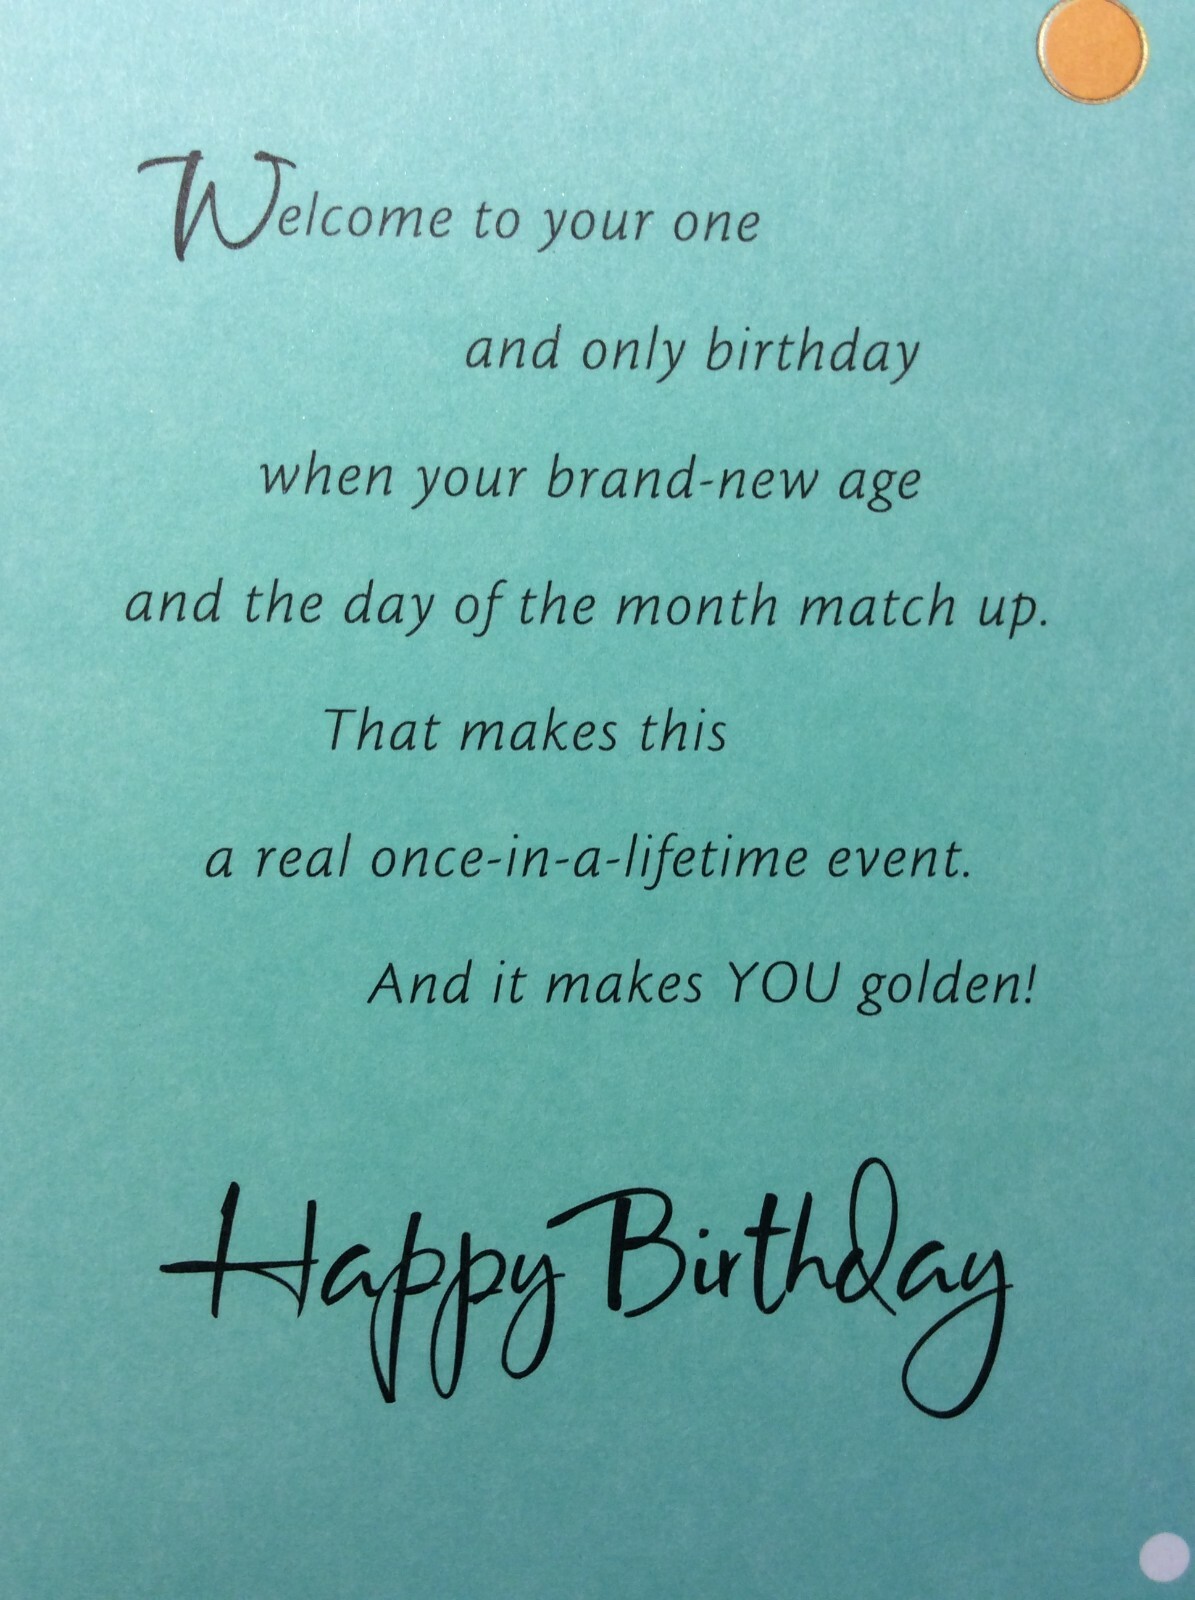 Welcome to your one
and only birthday
when your brand-new age
and the day of the month match up.
That makes this
a real once-in-a-lifetime event.
And it makes YOU golden!
Happy Birthday